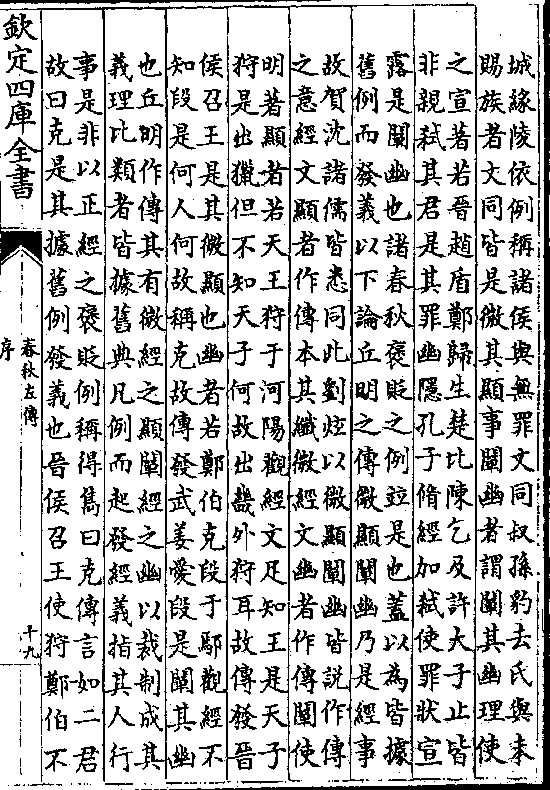 城緣陵依例稱諸侯與無罪文同叔孫豹去氏與未
賜族者文同皆是微其顯事闡幽者謂闡其幽理使
之宣著若晉趙盾鄭歸生楚比陳乞及許大子止皆
非親弒其君是其罪幽隱孔子脩經加弒使罪狀宣
露是闡幽也諸春秋褒貶之例竝是也蓋以為皆據
舊例而發義以下論丘明之傳微顯闡幽乃是經事
故賀沈諸儒皆悉同此劉炫以微顯闡幽皆説作傳
之意經文顯者作傳本其纖微經文幽者作傳闡使
明著顯者若天王狩于河陽觀經文足知王是天子
狩是出獵但不知天子何故出畿外狩耳故傳發晉
侯召王是其微顯也幽者若鄭伯克段于鄢觀經不
知段是何人何故稱克故傳發武姜愛段是闡其幽
也丘明作傳其有微經之顯闡經之幽以裁制成其
義理比類者皆據舊典凡例而起發經義指其人行
事是非以正經之褒貶例稱得雋曰克傳言如二君
故曰克是其據舊例發義也晉侯召王使狩鄭伯不
欽定四庫全書
春秋左傳
序
十九